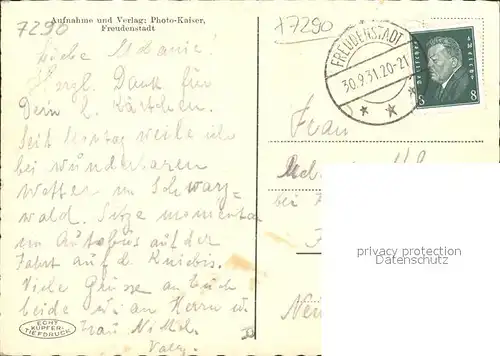 7290
Aufnahme und Verlag: Photo-Kaiser,
Freudenstadt
Liebe Melanie!
Herzl. Dank für
Dein l. Kärtchen.
Seit Montag weile ich
bei wunderbarem
Wetter im Schwarz-
wald. Sitze momentan
im Autobus auf der
Fahrt auf d. Kniebis.
Viele Grüsse an Euch
beide u. an Herrn u.
Frau
ECHT
KUPFER-
TIEFDRUCK
+7290
FREUDENSTADT
30.9.31.20-21
8 8
Frau
bei
privacy protection
Datenschutz